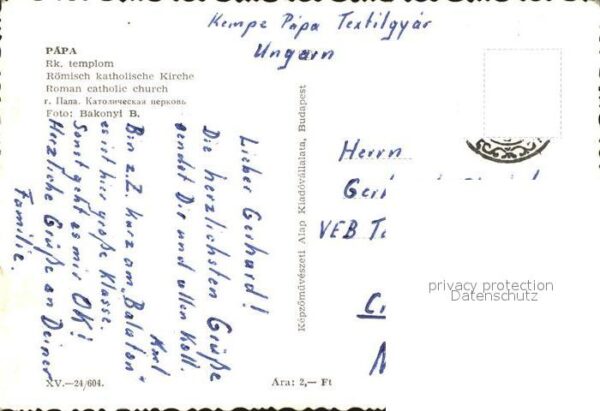 Kempe Pápa Textilgyár
Ungarn
PÁPA
Rk. templom
Römisch katholische Kirche
Roman catholic church
г. Папа. Католическая церковь
Foto: Bakonyi B.
Lieber Gerhard!
Die herzlichsten Grüße
sendet Dir und allen Koll.
Karl
Bin z.Z. kurz am "Balaton"
es ist hier große Klasse.
Sonst geht es mir OK!
Herzliche Grüße an Deine
Familie.
Képzőművészeti Alap Kiadóvállalata, Budapest
Herrn
VEB
privacy protection
Datenschutz
XV.—24/604.
Ára: 2,— Ft